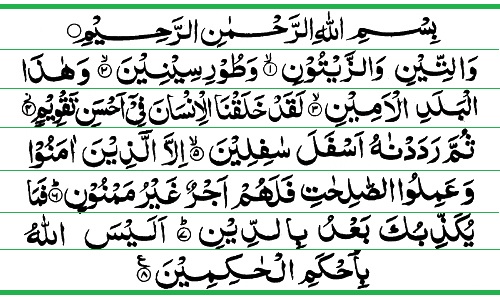 بِسْمِ اللهِ الرَّحْمٰنِ الرَّحِيْمِ ○
وَالتِّيْنِ وَالزَّيْتُوْنِ ۙ﴿۱﴾ وَطُوْرِ سِيْنِيْنَ ۙ﴿۲﴾ وَهٰذَا
الْبَلَدِ الْاَمِيْنِ ۙ﴿۳﴾ لَقَدْ خَلَقْنَا الْاِنْسَانَ فِيْۤ اَحْسَنِ تَقْوِيْمٍ ؗ﴿۴﴾
ثُمَّ رَدَدْنٰهُ اَسْفَلَ سٰفِلِيْنَ ۙ﴿۵﴾ اِلَّا الَّذِيْنَ اٰمَنُوْا
وَعَمِلُوا الصّٰلِحٰتِ فَلَهُمْ اَجْرٌ غَيْرُ مَمْنُوْنٍ ؕ﴿۶﴾ فَمَا
يُكَذِّبُكَ بَعْدُ بِالدِّيْنِ ؕ﴿۷﴾ اَلَيْسَ اللهُ
بِاَحْكَمِ الْحٰكِمِيْنَ ﴿۸﴾ع